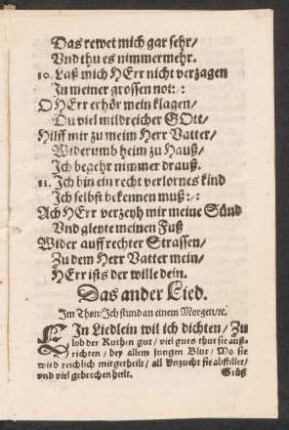 Das rewet mich gar sehr/
Vnd thu es nimmermehr.
10. Laß mich HErr nicht verzagen
In meiner grossen not:/:
O HErr erhör mein klagen/
Du viel mildreicher GOtt/
Hilff mir zu meim Herr Vatter/
Widerumb heim zu Hauß/
Ich begehr nimmer drauß.
11. Ich bin ein recht verlornes kind
Ich selbst bekennen muß:/:
Ach HErr verzeyh mir meine Sünd
Vnd gleyte meinen Fuß
Wider auff rechter Strassen/
Zu dem Herr Vatter mein/
HErr ists der wille dein.
Das ander Lied.
Im Thon: Ich stund an einem Morgen/ꝛc.
EIn Liedlein wil ich dichten/ Zu
lob der Ruthen gut/ viel guts thut sie auß-
richten/ bey allem jungen Blut/ Wo sie
wird reichlich mitgetheilt/ all Vnzucht sie abstillet/
vnd viel gebrechen heilt.